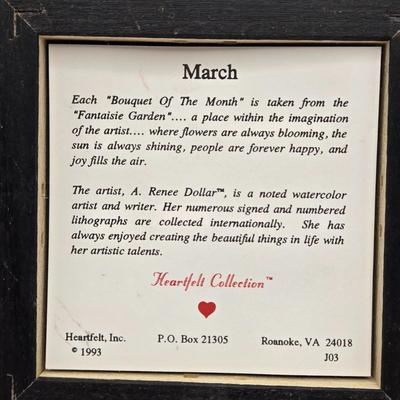 March
Each "Bouquet Of The Month" is taken from the
"Fantaisie Garden".... a place within the imagination
of the artist.... where flowers are always blooming, the
sun is always shining, people are forever happy, and
joy fills the air.
The artist, A. Renee Dollar™, is a noted watercolor
artist and writer. Her numerous signed and numbered
lithographs are collected internationally. She has
always enjoyed creating the beautiful things in life with
her artistic talents.
Heartfelt Collection™
Heartfelt, Inc. P.O. Box 21305 Roanoke, VA 24018
© 1993 J03